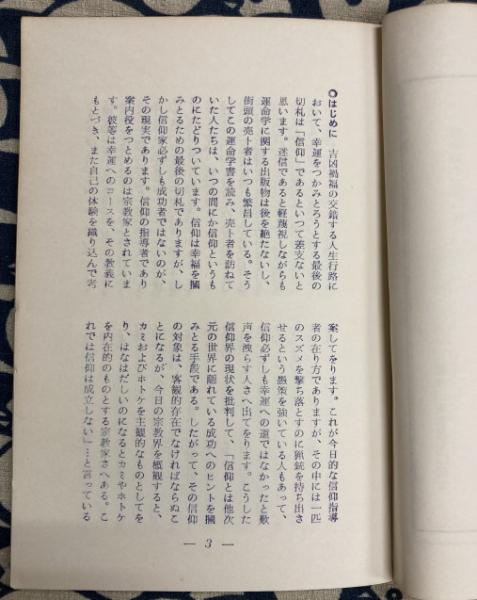 ◎はじめに　吉凶禍福の交錯する人生行路に
おいて、幸運をつかみとろうとする最後の
切札は「信仰」であるといつて差支ないと
思います。迷信であると軽蔑視しながらも
運命学に関する出版物は後を絶たないし、
街頭の売ト者はいつも繁昌している。そう
してこの運命学書を読み、売ト者を訪ねて
いた人たちは、いつの間にか信仰というも
のにたどりついています。信仰は幸福を摑
みとるための最後の切札でありますが、し
かし信仰家必ずしも成功者ではないのが、
その現実であります。信仰の指導者であり
案内役をつとめるのは宗教家とされていま
す。彼等は幸運へのコースを、その教義に
もとづき、また自己の体験を織り込んで考
案してをります。これが今日的な信仰指導
者の在り方でありますが、その中には一匹
のスズメを撃ち落とすのに猟銃を持ち出さ
せるという愚策を強いている人もあって、
信仰必ずしも幸運への道ではなかったと歎
声を洩らす人さへ出てをります。こうした
信仰界の現状を批判して、「信仰とは他次
元の世界に隠れている成功へのヒントを摑
みとる手段である。したがって、その信仰
の対象は、客観的存在でなければならぬこ
とになるが、今日の宗教界を概観すると、
カミおよびホトケを主観的なものとしてを
り、はなはだしいのになるとカミやホトケ
を内在的のものとする宗教家さへある。こ
れでは信仰は成立しない」…と言っている
— 3 —